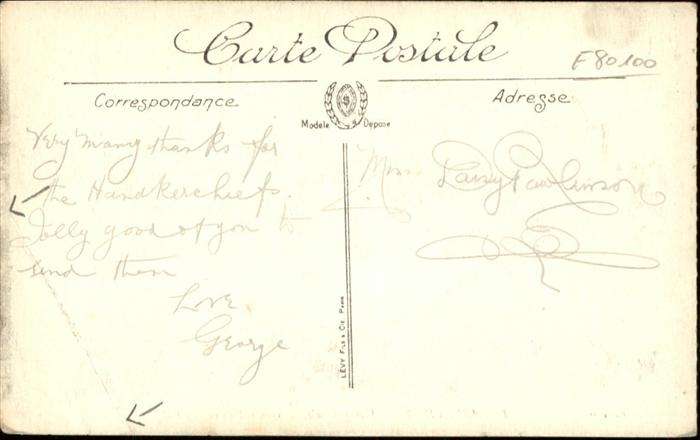 Carte Postale
F80100
Correspondance
Adresse
Modele Deposé
Very many thanks for
the Handkerchiefs.
Jolly good of you to
send them
Love
George
Miss Daisy Rawlinson
LÉVY FILS & CIE PARIS